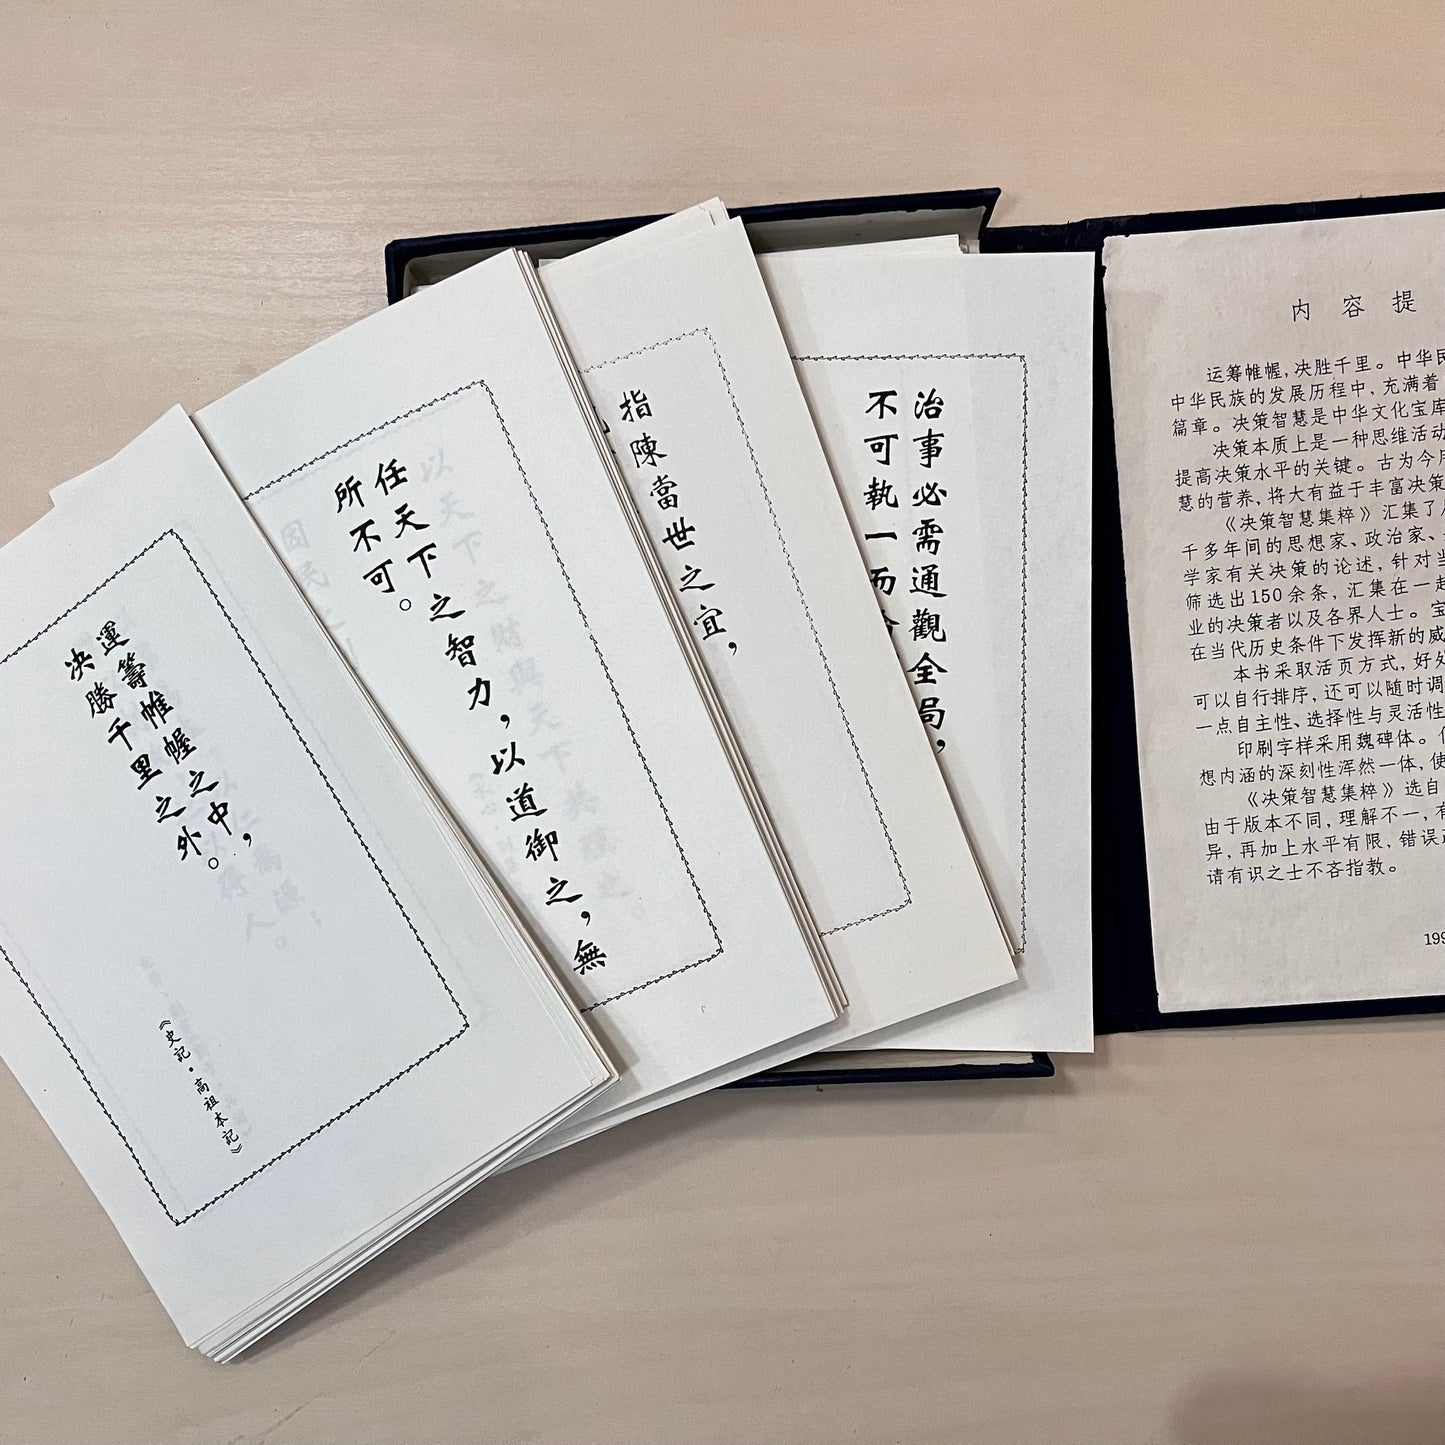 運籌帷幄之中，
決勝千里之外。
《史記·高祖本記》
任天下之智力，以道御之，無
所不可。
指陳當世之宜，
治事必需通觀全局，
不可執一而
内容提
运筹帷幄，决胜千里。中华民
中华民族的发展历程中，充满着
篇章。决策智慧是中华文化宝库
决策本质上是一种思维活动
提高决策水平的关键。古为今用
慧的营养，将大有益于丰富决策
《决策智慧集粹》汇集了
千多年间的思想家、政治家、
学家有关决策的论述，针对当
筛选出150余条，汇集在一起
业的决策者以及各界人士。宝
在当代历史条件下发挥新的威
本书采取活页方式，好处
可以自行排序，还可以随时调
一点自主性、选择性与灵活性
印刷字样采用魏碑体。
想内涵的深刻性浑然一体，使
《决策智慧集粹》选自
由于版本不同，理解不一，有
异，再加上水平有限，错误
请有识之士不吝指教。
199